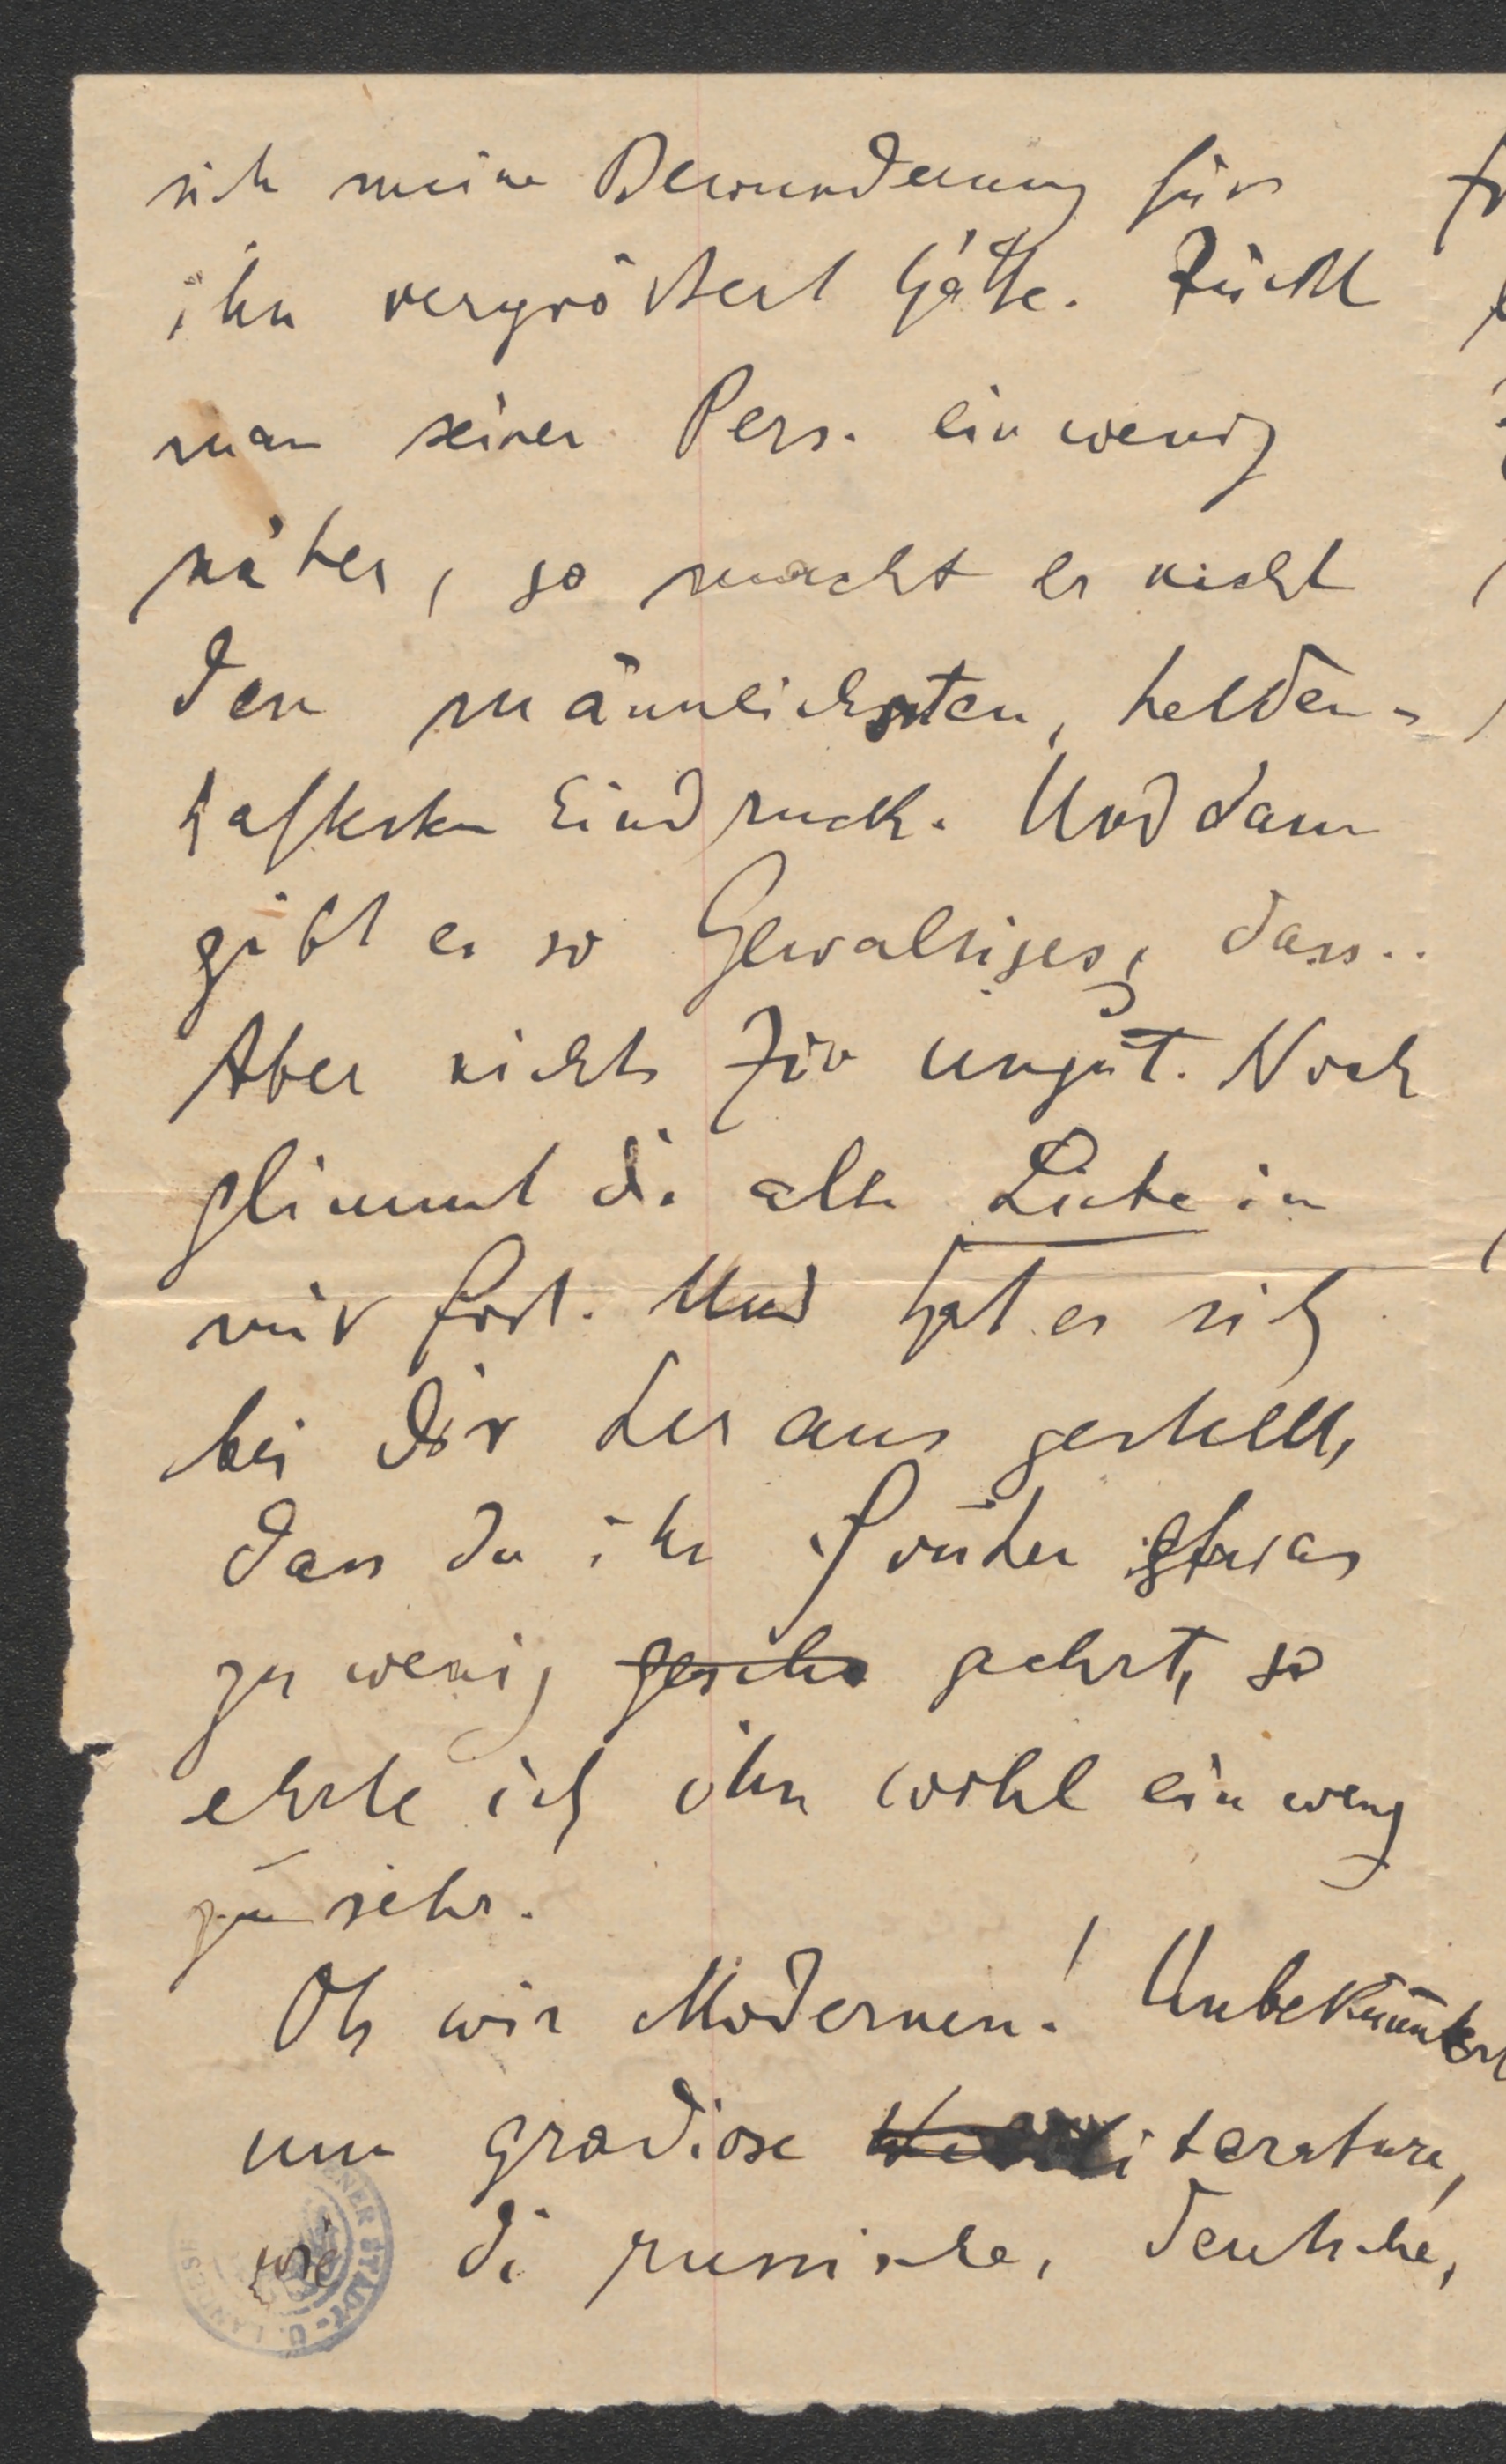 sich meine Bewunderung für
ihn vergrößert hätte. Rückt
man seiner Pers. ein wenig
näher, so macht er nicht
den männlichsten, helden-
haftesten Eindruck. Und dann
gibt es so Gewaltiges, dass..
Aber nichts für ungut. Noch
glimmt die alte Liebe in
mir fort. Und hat es sich
bei Dir herausgestellt,
dass du ihn früher etwas
zu wenig geehrt, so
ehrte ich ihn wohl ein wenig
zu sehr.
Oh wir Modernen! Unbekümmert
um gradiose Literaturen,
wie die russische, deutsche,